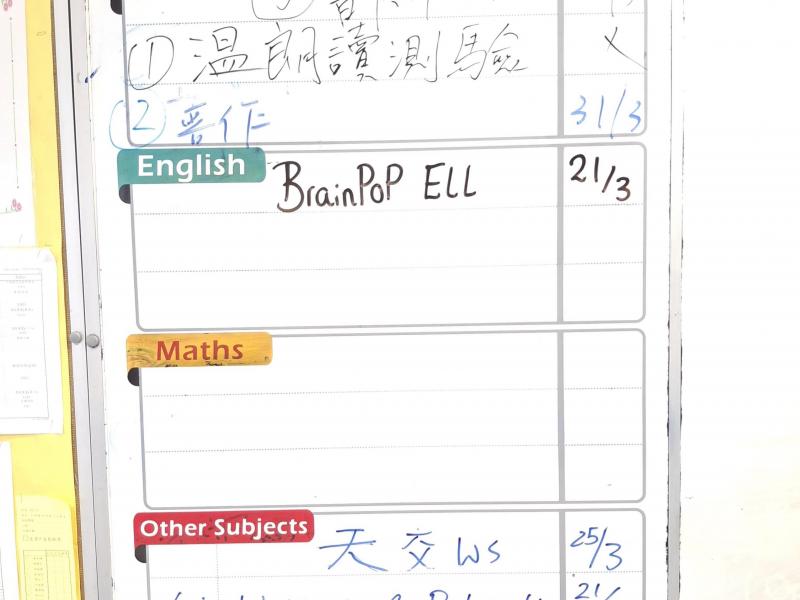 ① 温朗讀測驗 ✓
② 晋作 31/3
English BrainPoP ELL 21/3
Maths
Other Subjects 天交 WS 25/3
21/